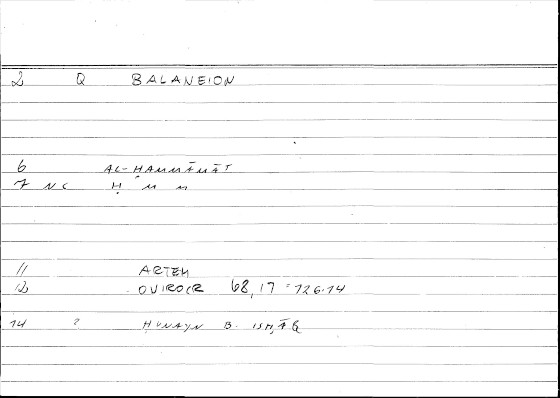 2 Q BALANEION
6 AL-ḤAMMĀMĀT
7 NC Ḥ M M
11 ARTEM
12 OVIROCR 68,17 = 126.14
14 2 ḤUNAYN B. ISḤĀQ